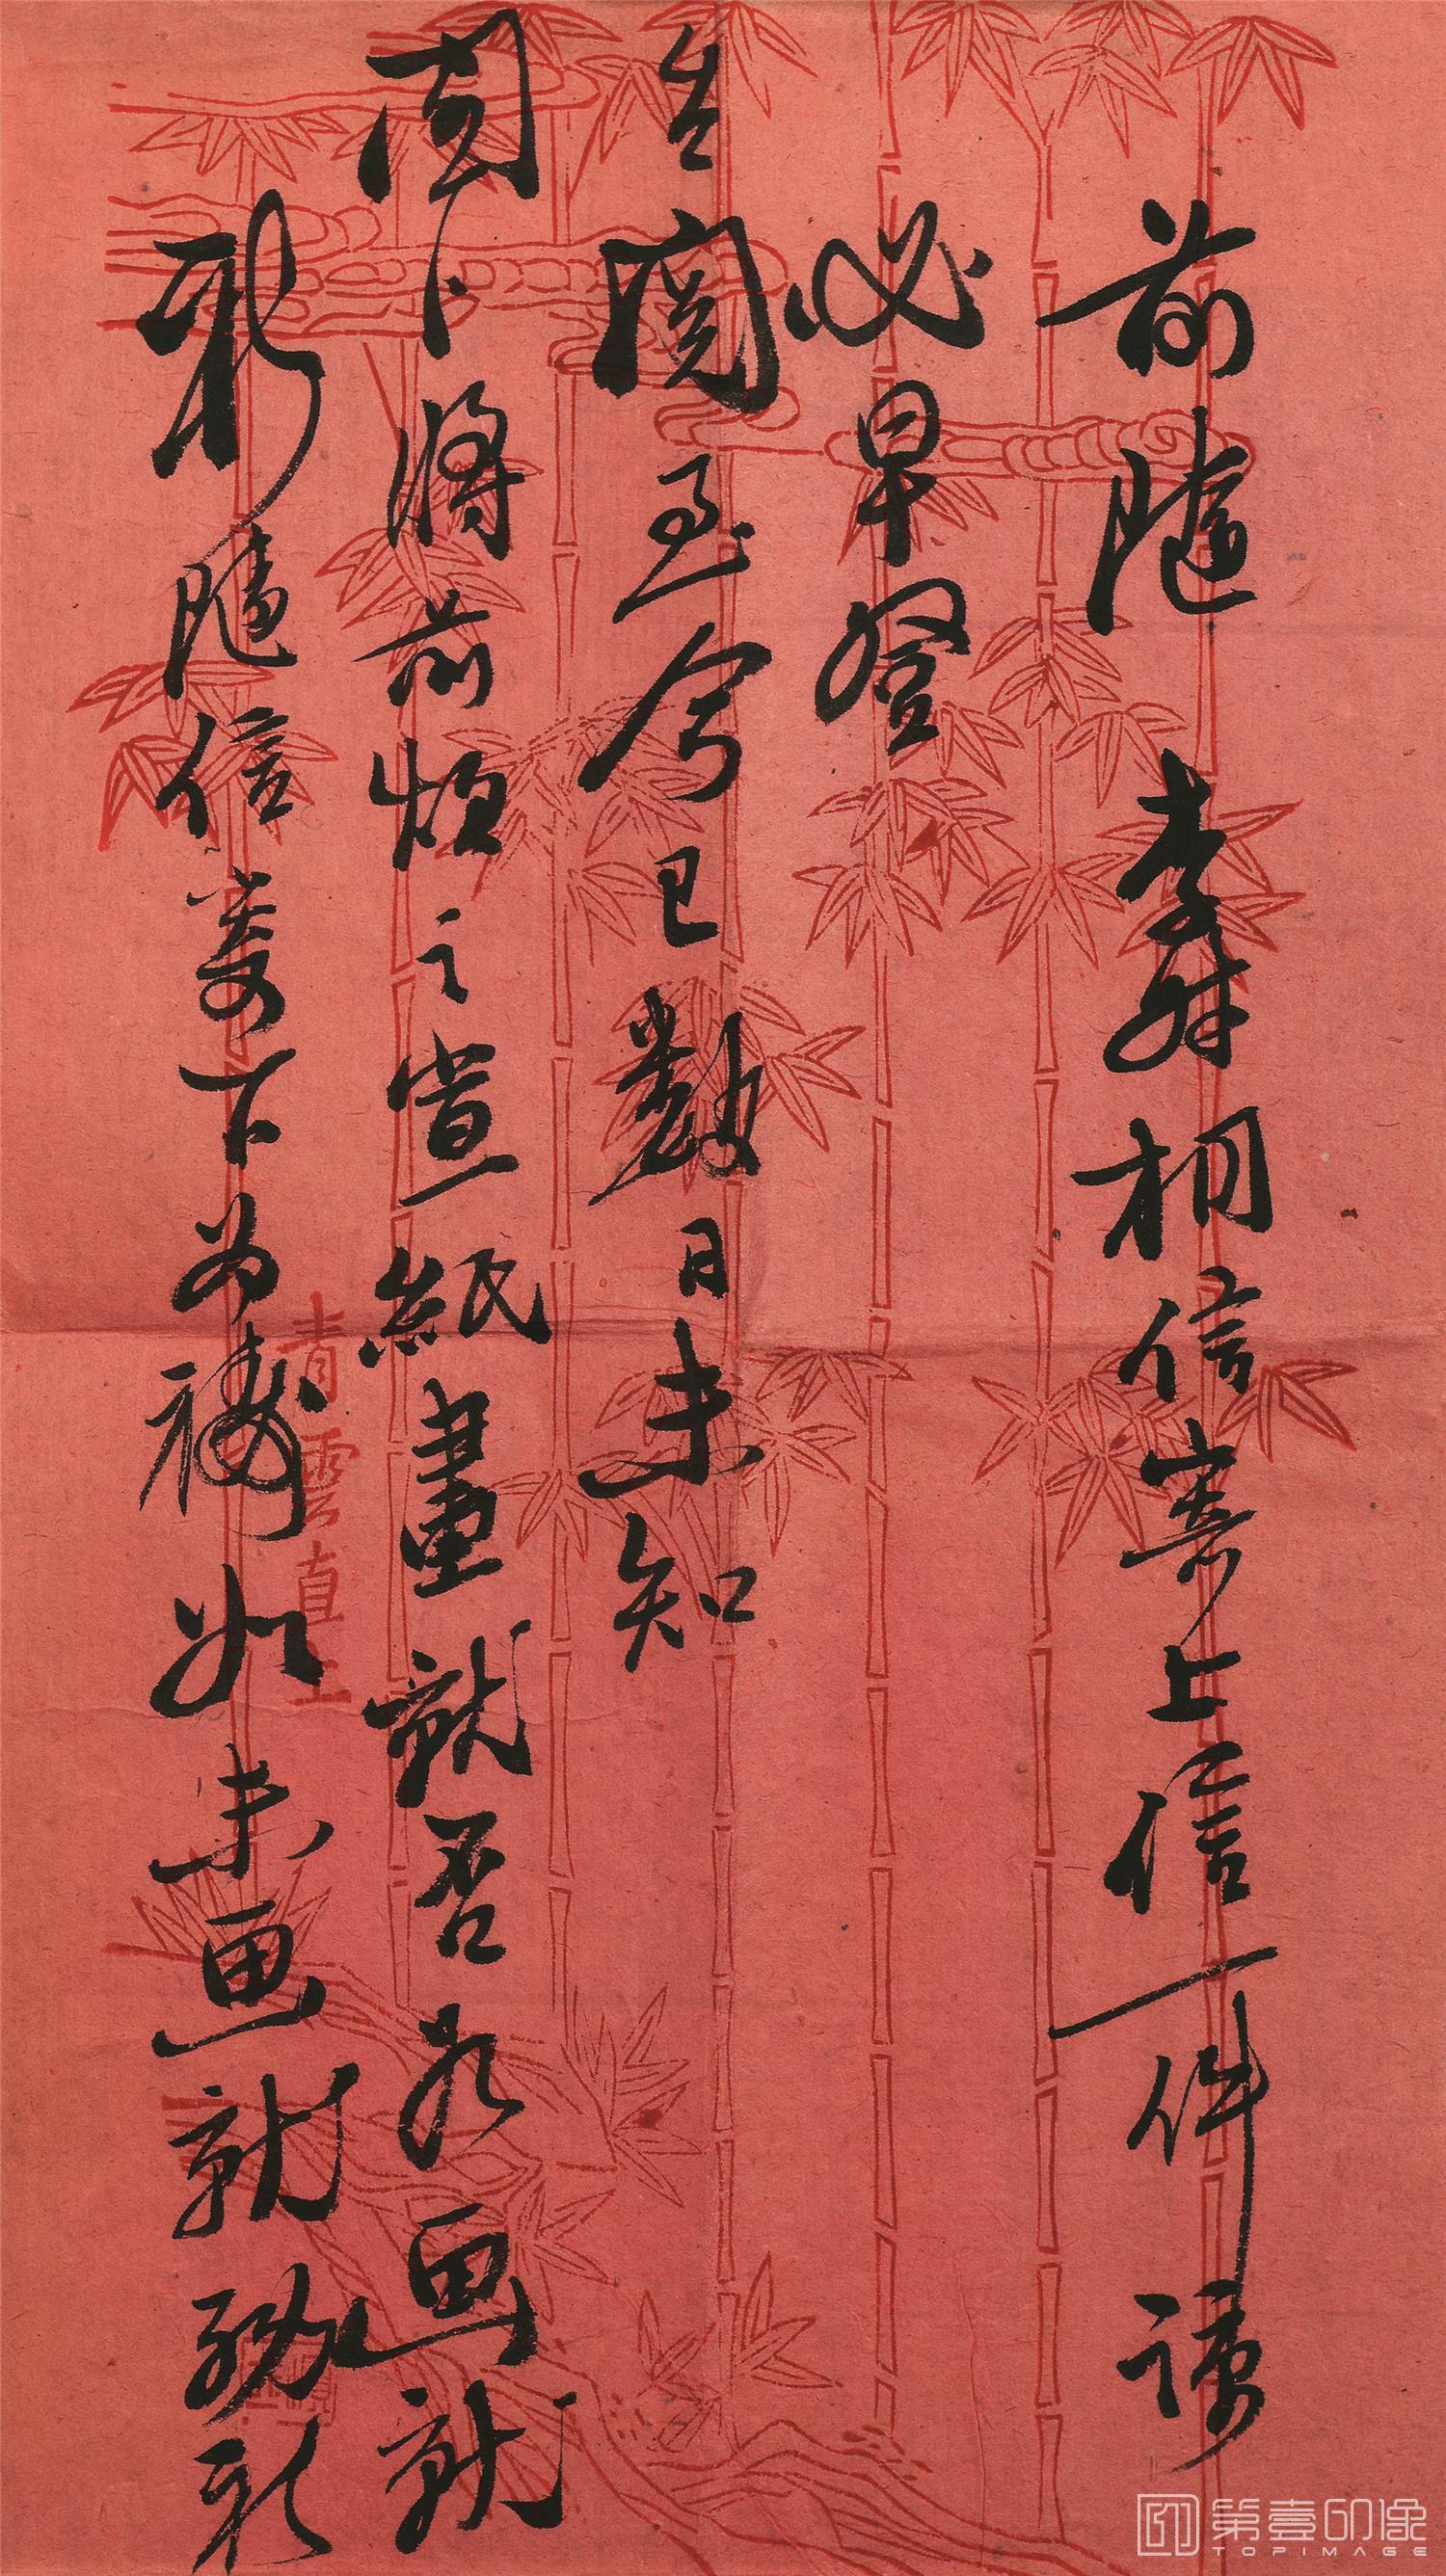 前隨 李舜相信寄上信一件諒
必早登
台閱至今已數日未知
閣下將前煩之壹紙畫就否如画就
祈隨信寄下为禱如未画就務祈
青雲直上
第壹印像
TOPIMAGE